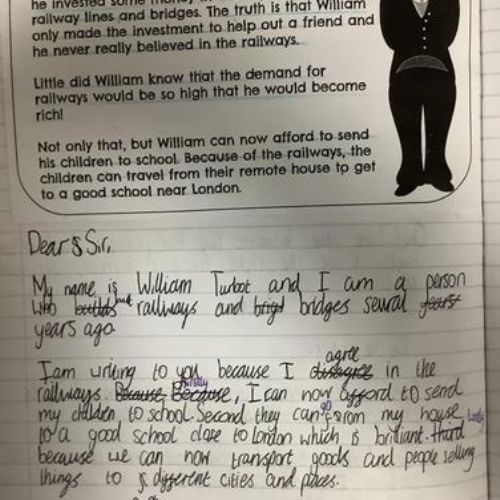 he invested some money in
railway lines and bridges. The truth is that William
only made the investment to help out a friend and
he never really believed in the railways.
Little did William know that the demand for
railways would be so high that he would become
rich!
Not only that, but William can now afford to send
his children to school. Because of the railways, the
children can travel from their remote house to get
to a good school near London.
Dear Sir,
My name is William Turbot and I am a person
who builds railways and brigd bridges seural years
years ago.
agree
I am writing to you because I disagree in the
firstly
railways. Because Because, I can now afford to send
go
my children to school. Second they can from my house
Lastly
to a good school close to London which is briliant. third
because we can now transport goods and people selling
things to different cities and places.